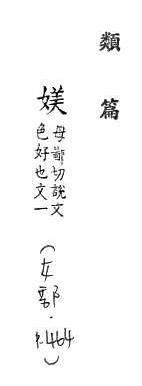 類篇
媄
母鄙切說文
色好也文一
(女部·p.464)